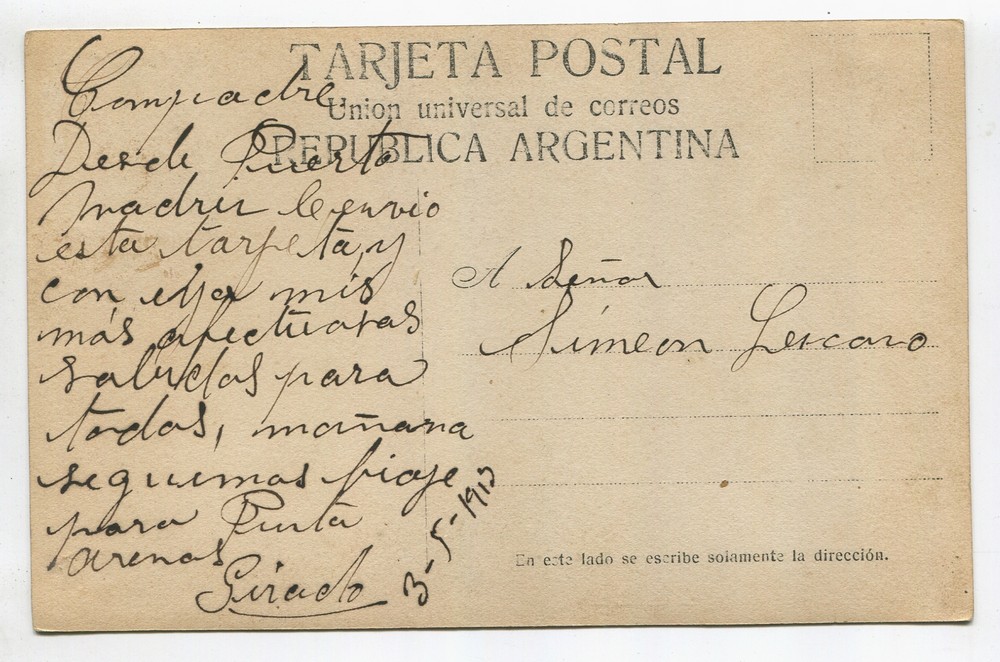 TARJETA POSTAL
Union universal de correos
REPUBLICA ARGENTINA
Compadre
Desde Puerto
madrin le envio
esta tarjeta, y
con ella mis
más afectuosas
saludos para
todos, mañana
seguimos biaje
para Punta
arenas
3-5-1919
A Señor
Simeon Lescano
En este lado se escribe solamente la dirección.